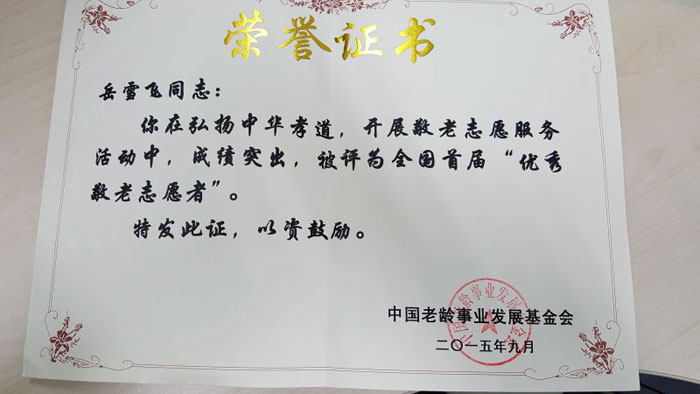 荣誉证书
岳雪飞同志：
你在弘扬中华孝道，开展敬老志愿服务
活动中，成绩突出，被评为全国首届“优秀
敬老志愿者”。
特发此证，以资鼓励。
中国老龄事业发展基金会
二〇一五年九月
中国老龄事业发展基金会